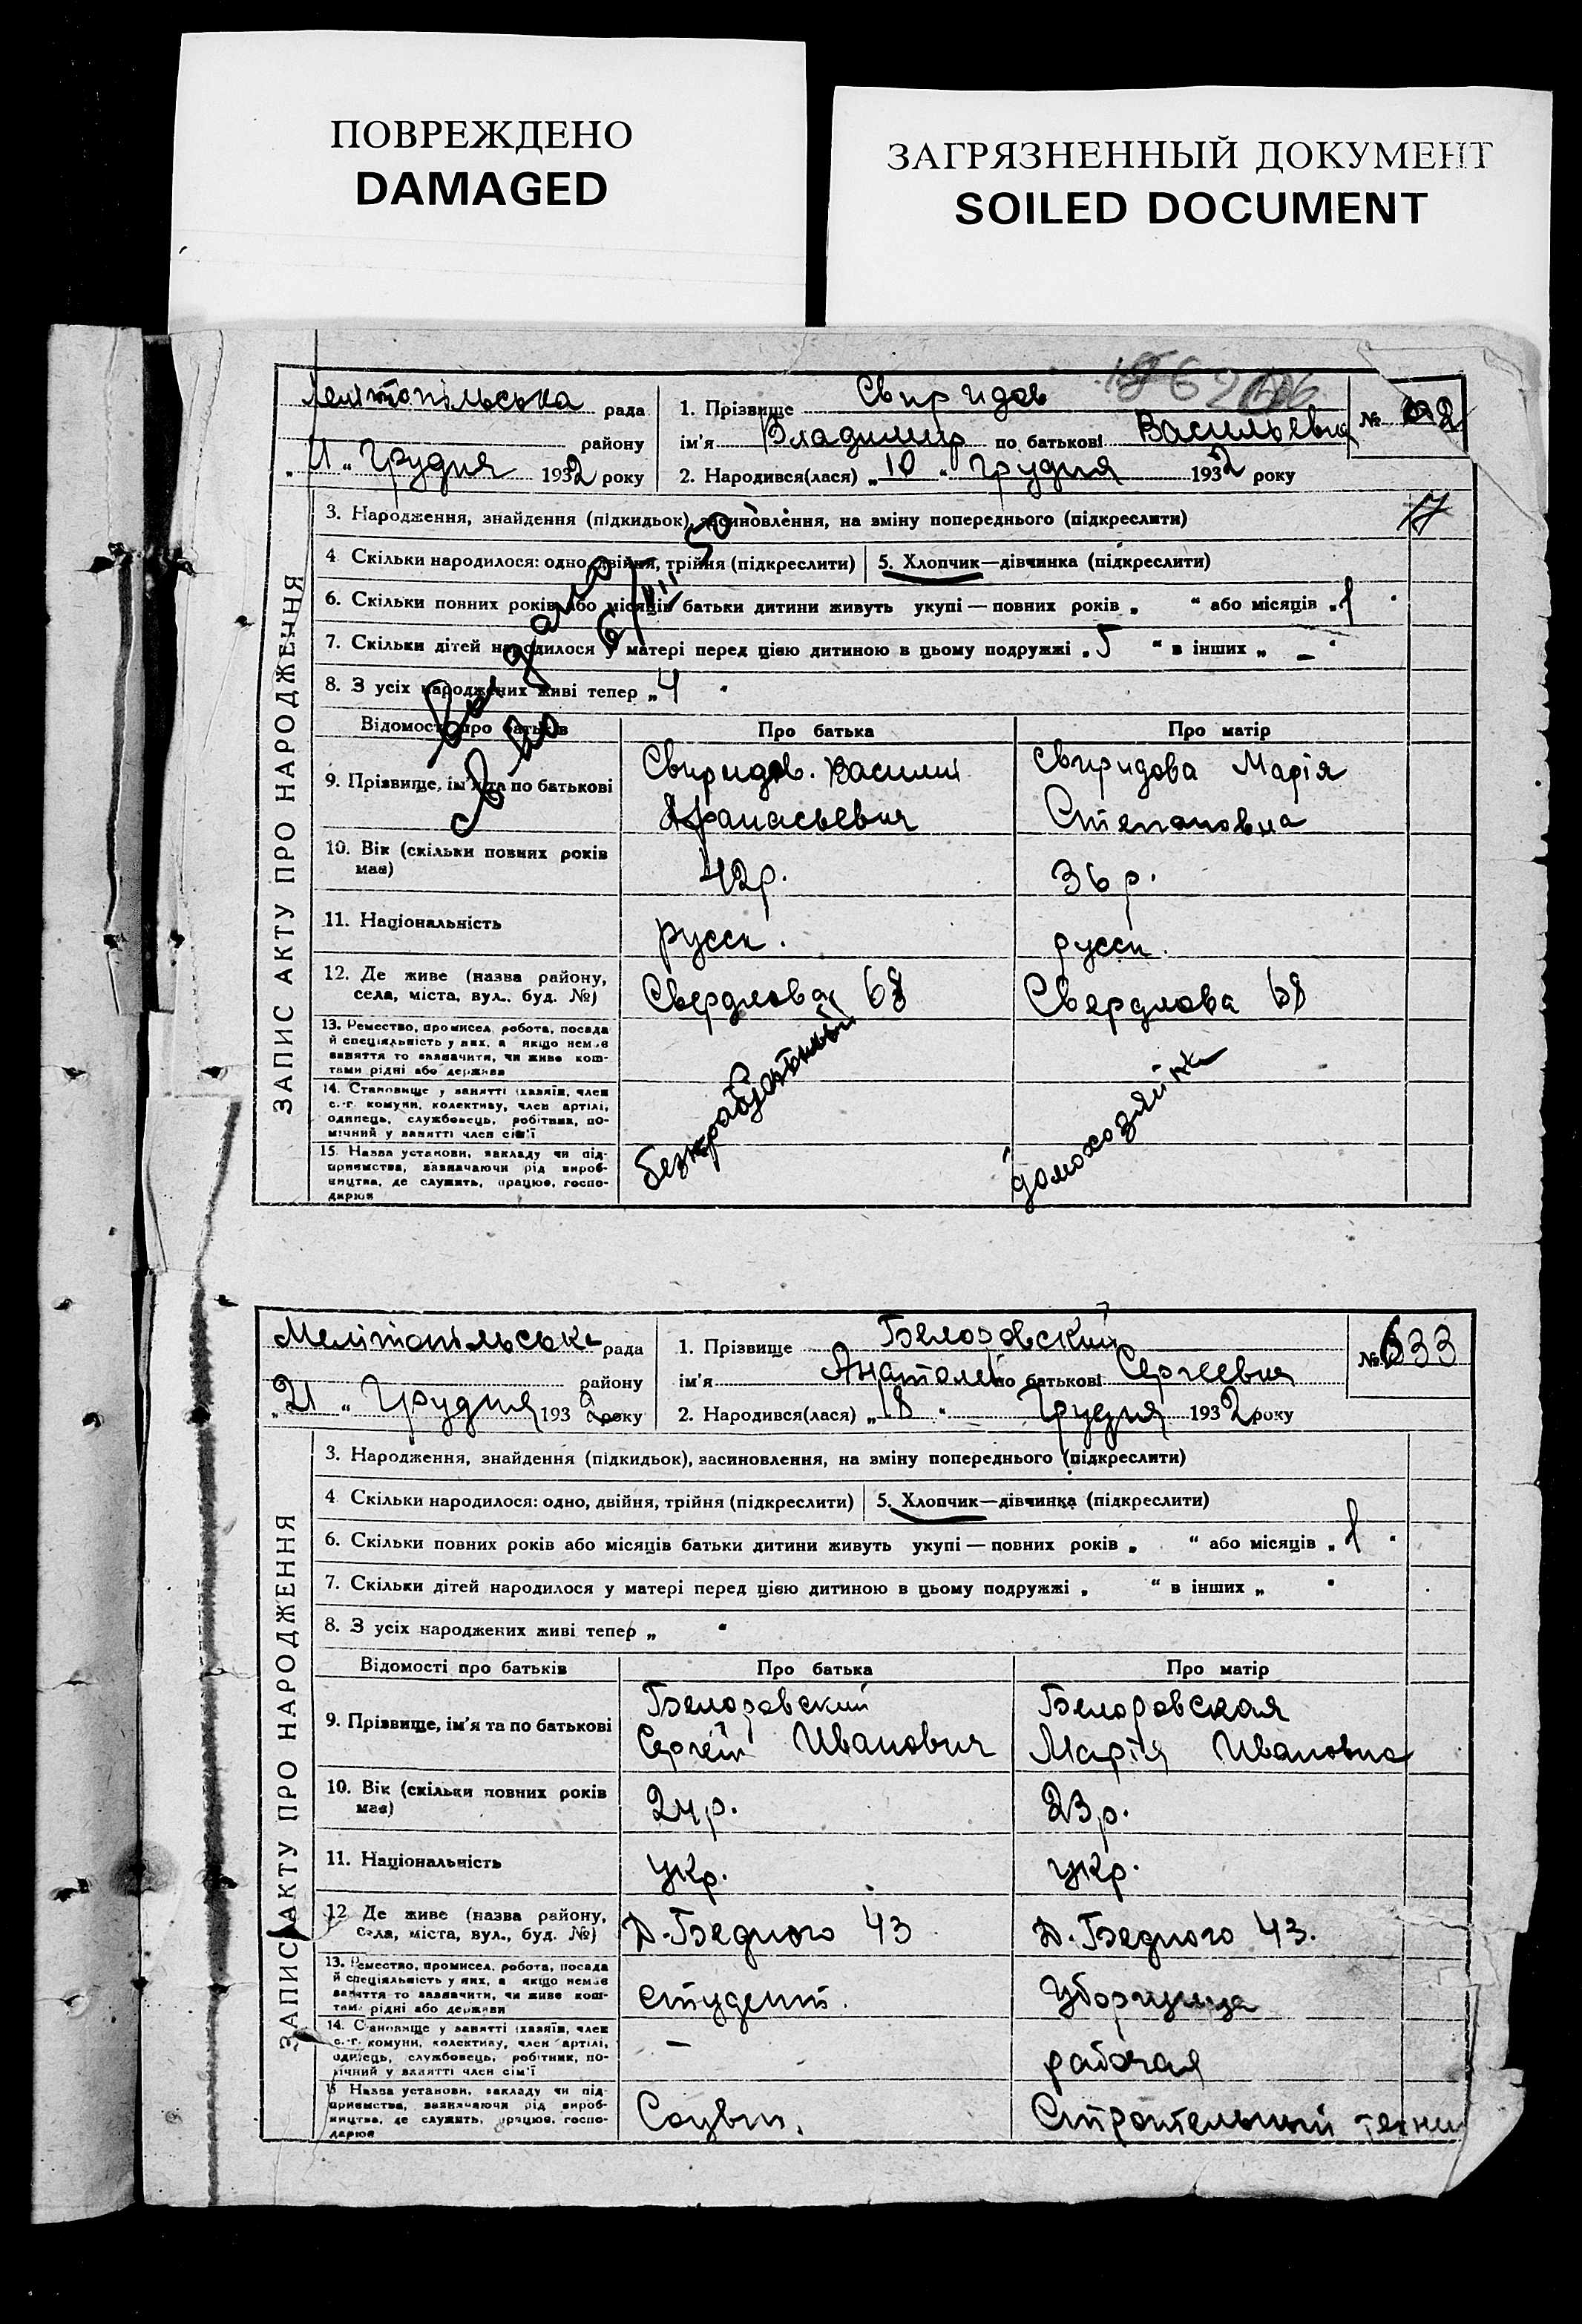 ПОВРЕЖДЕНО
DAMAGED
ЗАГРЯЗНЕННЫЙ ДОКУМЕНТ
SOILED DOCUMENT
ЗАПИС АКТУ ПРО НАРОДЖЕННЯ
Мелітопільська рада
району
"21" Грудня 1932 року
1. Прізвище Свиридов
ім'я Владимир по батькові Васильевич
2. Народився(лася) "10" Грудня 1932 року
№
17
3. Народження, знайдення (підкидьок), засиновлення, на зміну попереднього (підкреслити)
4. Скільки народилося: одно, двійня, трійня (підкреслити) 5. Хлопчик—дівчинка (підкреслити)
6. Скільки повних років або місяців батьки дитини живуть укупі — повних років „ “ або місяців „
7. Скільки дітей народилося у матері перед цією дитиною в цьому подружжі „5 “ в інших „ – “
8. З усіх народжених живі тепер „4 “
Відомості про батьків Про батька Про матір
9. Прізвище, ім'я та по батькові
Свиридов Василий
Афанасьевич
Свиридова Марія
Степановна
10. Вік (скільки повних років
має)
42р. 36р.
11. Національність русск. русск.
12. Де живе (назва району,
села, міста, вул., буд. №)
Свердлова 68 Свердлова 68
13. Ремество, промисел, робота, посада
й спеціяльність у них, а якщо немає
заняття то зазначити, чи живе кош-
тами рідні або держави
14. Становище у занятті (хазяїн, член
с.-г. комуни, колективу, член артілі,
одинець, службовець, робітник, по-
мічний у занятті член сім'ї
15. Назва установи, закладу чи під-
приємства, зазначаючи рід вироб-
ництва, де служить, працює, госпо-
дарює
домохозяйка
ЗАПИС АКТУ ПРО НАРОДЖЕННЯ
Мелітопільська рада
району
"21" Грудня 1932 року
1. Прізвище
ім'я Анатолей по батькові Сергеевич
2. Народився(лася) "18" Грудня 1932 року
№ 633
3. Народження, знайдення (підкидьок), засиновлення, на зміну попереднього (підкреслити)
4. Скільки народилося: одно, двійня, трійня (підкреслити) 5. Хлопчик—дівчинка (підкреслити)
6. Скільки повних років або місяців батьки дитини живуть укупі — повних років „ “ або місяців „
7. Скільки дітей народилося у матері перед цією дитиною в цьому подружжі „ “ в інших „ “
8. З усіх народжених живі тепер „ “
Відомості про батьків Про батька Про матір
9. Прізвище, ім'я та по батькові
Сергей Иванович
Марія Ивановна
10. Вік (скільки повних років
має)
24р. 23р.
11. Національність укр. укр.
12 Де живе (назва району,
села, міста, вул., буд. №)
Д. Бедного 43 Д. Бедного 43.
13. Ремество, промисел, робота, посада
й спеціяльність у них, а якщо немає
заняття то зазначити, чи живе кош-
тами рідні або держави
студент. Уборщица
14. Становище у занятті (хазяїн, член
с.-г. комуни, колективу, член артілі,
одинець, службовець, робітник, по-
мічний у занятті член сім'ї
– рабочая
15 Назва установи, закладу чи під-
приємства, зазначаючи рід вироб-
ництва, де служить, працює, госпо-
дарює
Строительный техни